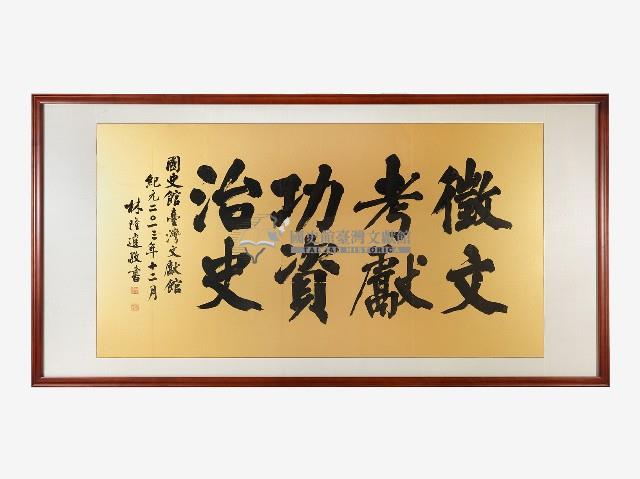 徵文
考獻
功資
治史
國史館臺灣文獻館
紀元二〇一三年十二月
林隆達敬書
國史館臺灣文獻館
TAIWAN HISTORICA